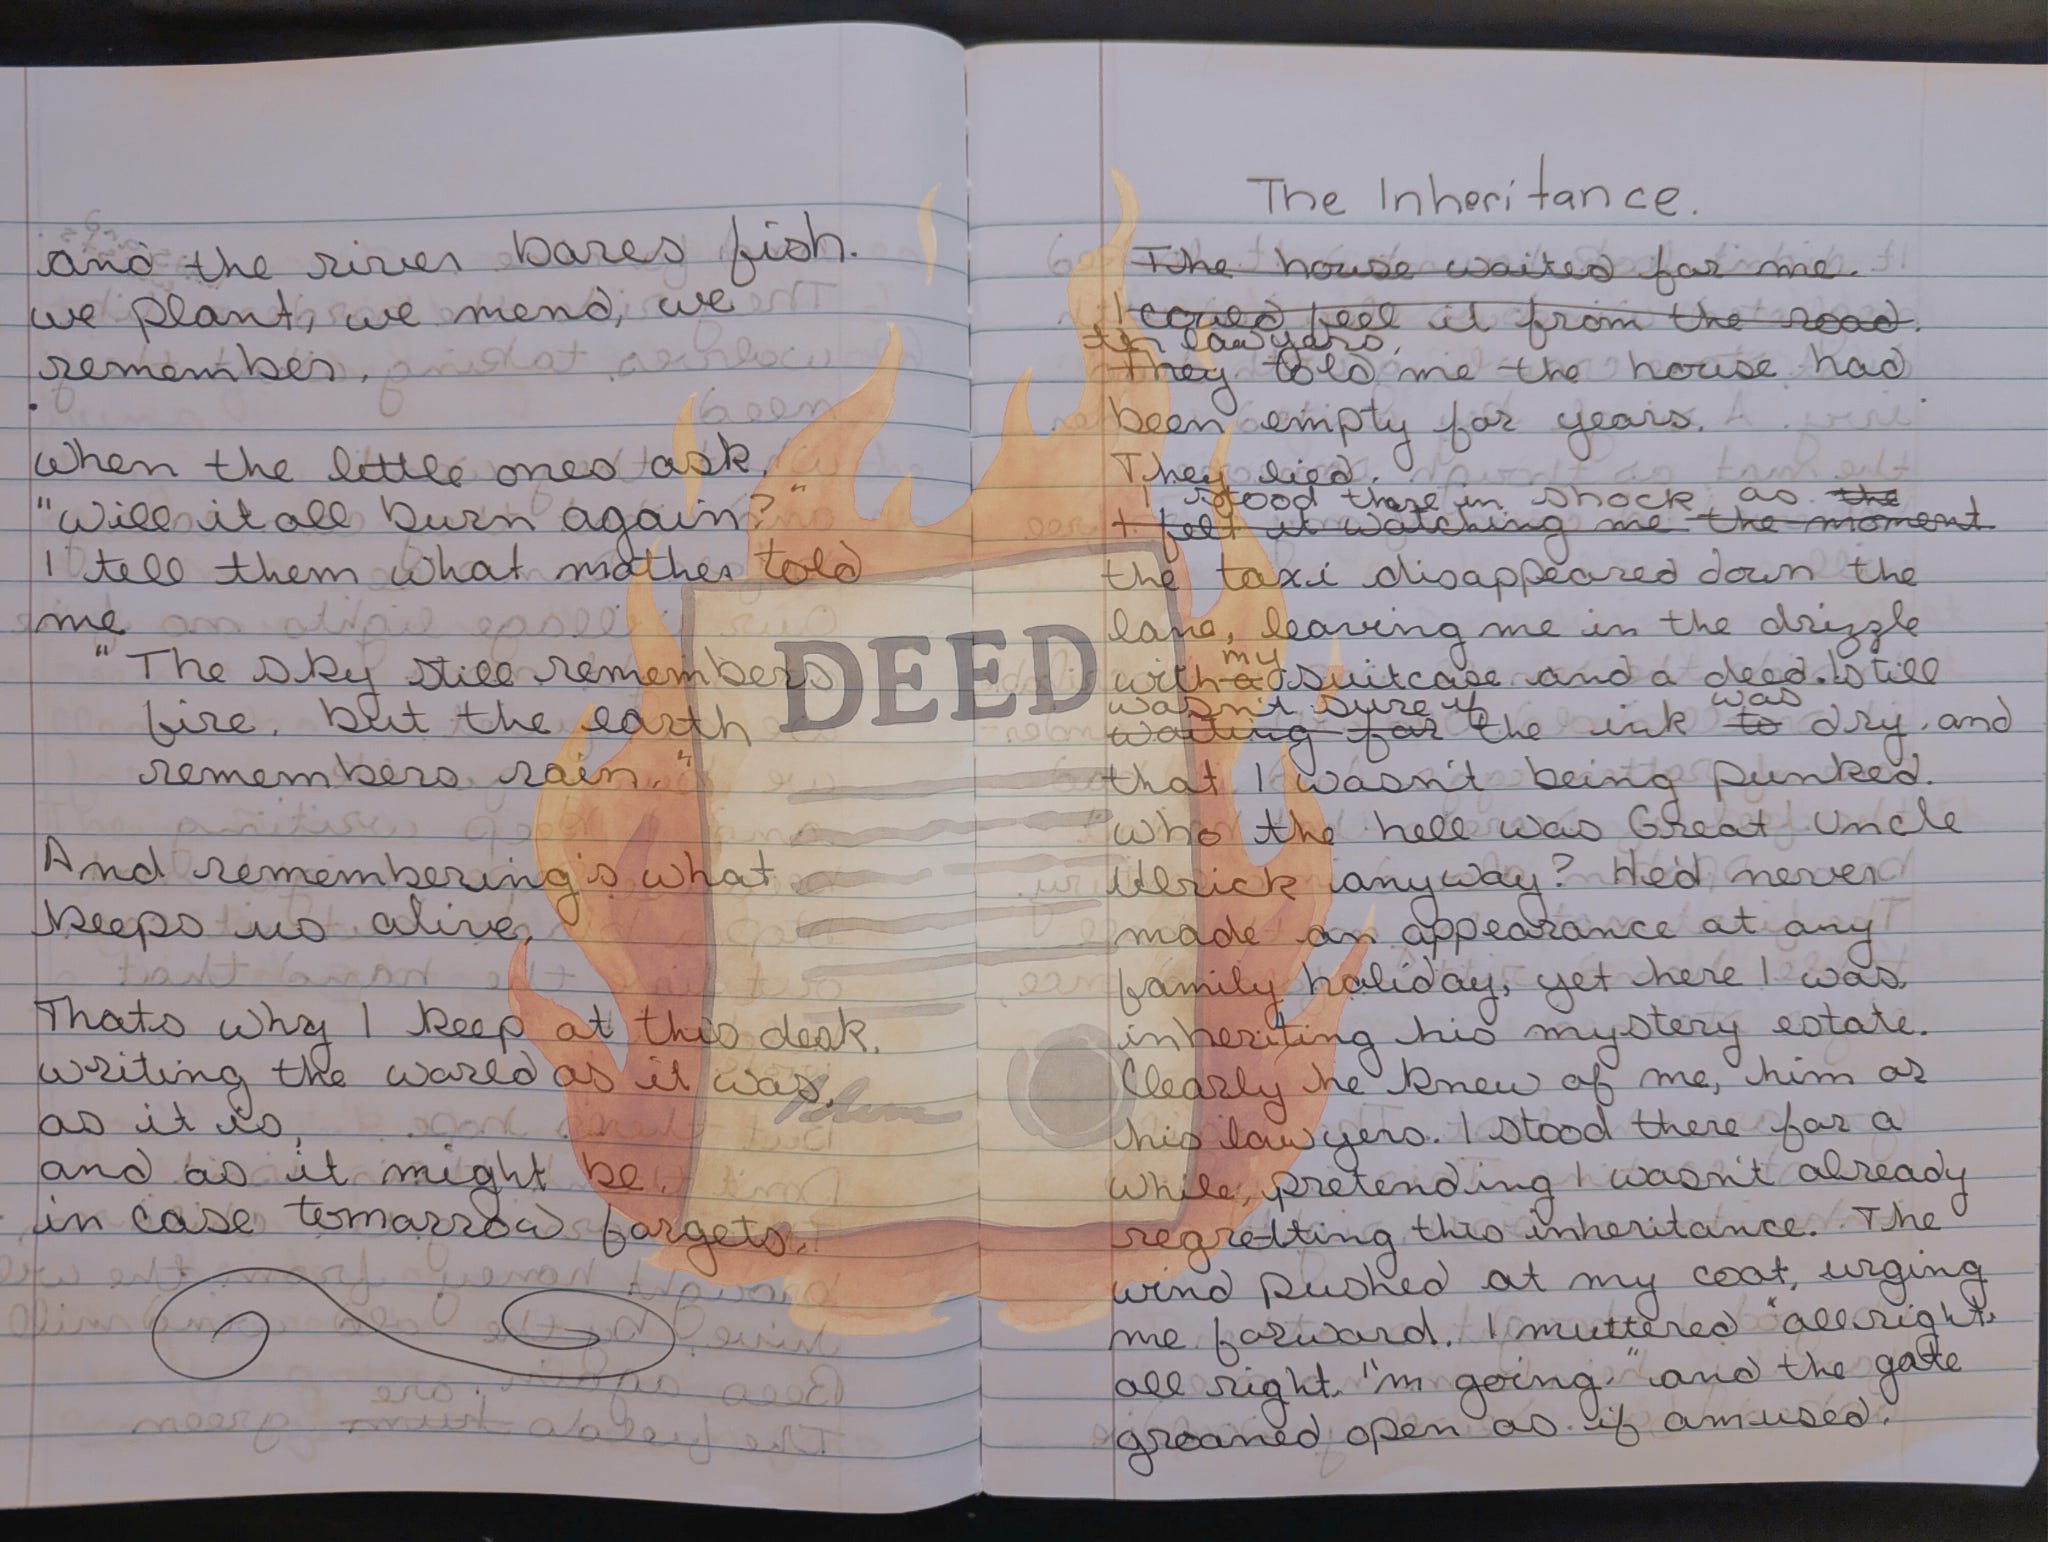 and the river bares fish.
we plant, we mend, we
remember.
when the little ones ask,
"Will it all burn again?"
I tell them what mother told
me
"The sky still remembers
fire. but the earth
remembers rain."
And remembering's what
keeps us alive.
Thats why I keep at this desk.
writing the world as it was,
as it is,
and as it might be.
in case tomorrow forgets.
The Inheritance.
The house waited for me.
I could feel it from the road.
the lawyers,
they told me the house had
been empty for years.
They lied.
I stood there in shock as the
I felt it watching me the moment
the taxi disappeared down the
lane, leaving me in the drizzle
my
with a suitcase and a deed. I still
wasn't sure if was
waiting for the ink to dry. and
that I wasn't being punked.
"Who the hell was Great Uncle
Ulrick anyway? He'd never
made an appearance at any
family holiday, yet here I was
inheriting his mystery estate.
Clearly he knew of me, him or
his lawyers. I stood there for a
while, pretending I wasn't already
regretting this inheritance. The
wind pushed at my coat, urging
me forward. I muttered "all right,
all right. I'm going." and the gate
groaned open as if amused.
DEED